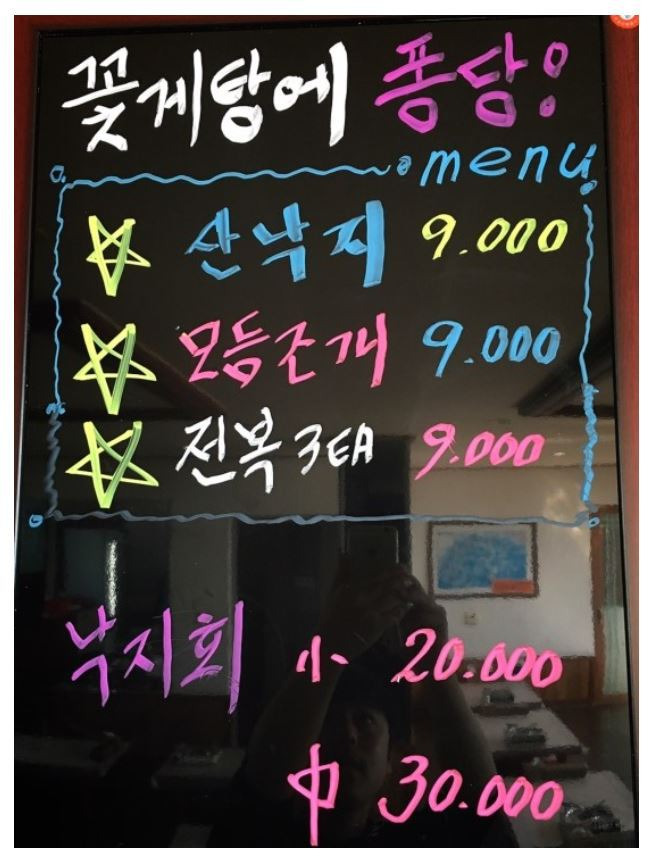 꽃게탕에 퐁당!
menu
산낙지 9.000
모듬조개 9.000
전복 3EA 9.000
낙지회 小 20.000
中 30.000